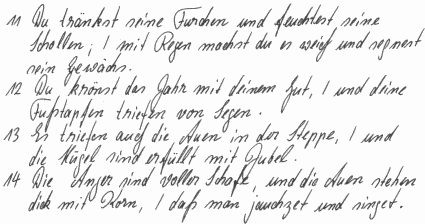 11 Du tränkst seine Furchen und feuchtest seine
Schollen; / mit Regen machst du es weich und segnest
sein Gewächs.
12 Du krönst das Jahr mit deinem Gut, / und deine
Fußtapfen triefen von Segen.
13 Es triefen auch die Auen in der Steppe, / und
die Hügel sind erfüllt mit Jubel.
14 Die Anger sind voller Schafe, und die Auen stehen
dick mit Korn, / daß man jauchzet und singet.